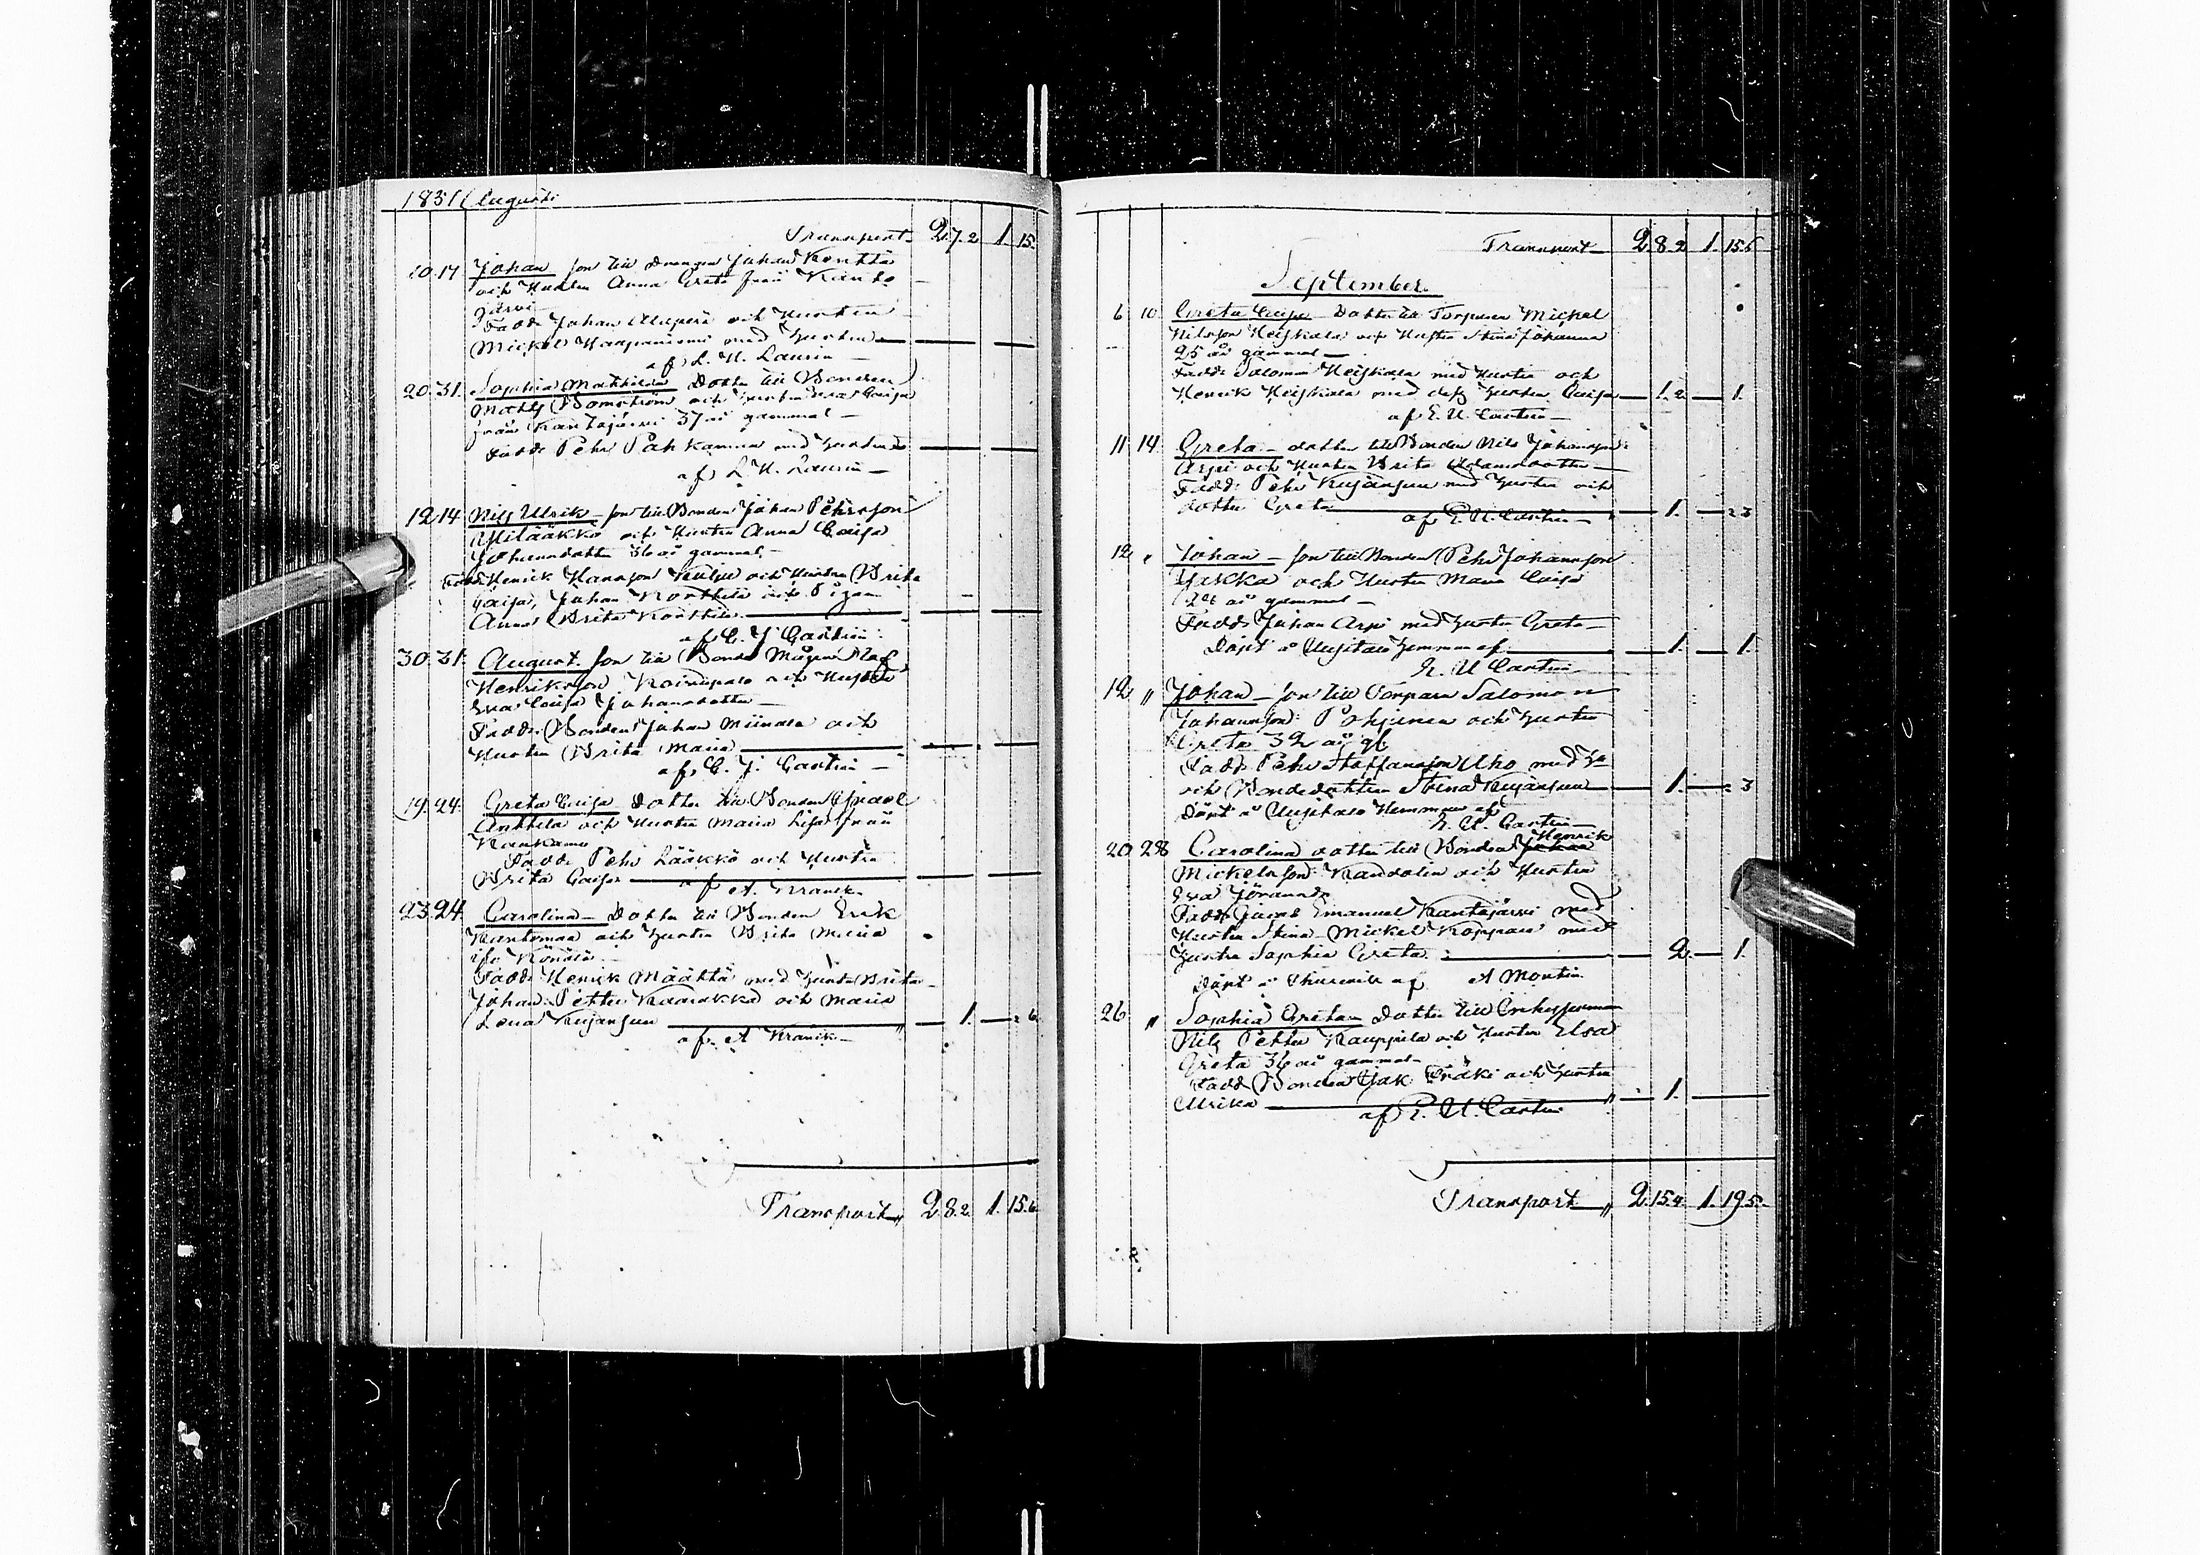 1831 Augusti
Transport 2. 7. 2 1. 15.
10. 17 Johan son till Drengen Johan Konttä
och Hustru Anna Greta från Kanto
järvi
Fadd. Johan Alaperä och Hustru
Mickel Haapaniemi med Hustru
af L. H. Laurin
20. 31. Sophia Mathilda Dotter till Bonden
Maths Bomström och Hustru Eva Caisa
från Kantojärvi 37 år gammal
Fadd. Pehr Påhkamaa med Hustru
af L. H. Laurin
12 14 Nils Ulrik son till Bonden Johan Pehrsson
Ylilääkkö och Hustru Anna Caisa
Johansdotter 36 år gammal
Fadd. Henrick Hansson och Hustru Brita
Caisa, Johan Konttila och Pigan
Anna Brita Konttila
af C. J. Castrén
30. 31. August son till Bonde Mågen Olof
Henriksson och Hustru
Eva Caisa Johansdotter
Fadd. Bonden Johan Miinala och
Hustru Brita Maria
af C. J. Castrén
19. 24. Greta Caisa Dotter till Bonden Israel
Anttila och Hustru Maria Lisa från
Kaakamo
Fadd. Pehr Lääkkö och Hustru
Brita Caisa
af A. Kranck
23. 24. Carolina Dotter till Bonden Erik
Kantomaa och Hustru Brita Maria
Fadd. Henrik Määttä med Hustru Brita
Johan Petter Kaarakka och Maria
Lena Kujansuu 1. 6
af A Kranck
Transport 2. 8. 2. 1. 15. 6
Transport 2. 8. 2 1. 15. 6
September.
6 10 Greta Caisa Dotter till Torparen Mickel
Nilsson Heiskala och Hustru Stina Johanna
25 år gammal
Fadd. Salomon Heiskala med Hustru och
Henrik Heiskala med dess Hustru Caisa 1. 2 1.
af E. U. Castrén
11 14. Greta dotter till Bonden Nils Johansson
Arpi och Hustru Brita Adamsdotter
Fadd. Pehr Kujansuu med Hustru och
dotter Greta 1. 3
af E. U. Castrén
12 " Johan son till Bonden Pehr Johansson
Jakka och Hustru Maria Caisa
24 år gammal
Fadd. Johan Arpi med Hustru Greta
Döpt å Hemman af 1. 1.
E. U Castrén
12 " Johan son till Torparen Salomon
Johansson Pohjonen och Hustru
Greta 32 år gl.
Fadd. Pehr Staffansson Uho med H
och Bondedottren Stina Kujansuu 1. 3
Döpt å Hemman af
E. U. Castrén
20 28 Carolina dotter till Bonden Henrik
Mickelsson Kandolin och Hustru
Eva Johanna
Fadd. Emanuel Kantojärvi med
Hustru Stina Mickel Koppari med
Hustru Sophia Greta 2. 1.
Döpt å af A Montin
26 " Sophia Greta Dotter till Enkefruman
Nils Petter Kauppila och Hustru Elsa
Greta 36 år gammal
Fadd. Bonden Isak Träki och Hustru
Ulrika 1.
af E. U. Castrén
Transport 2. 15. 4. 1. 19. 5.